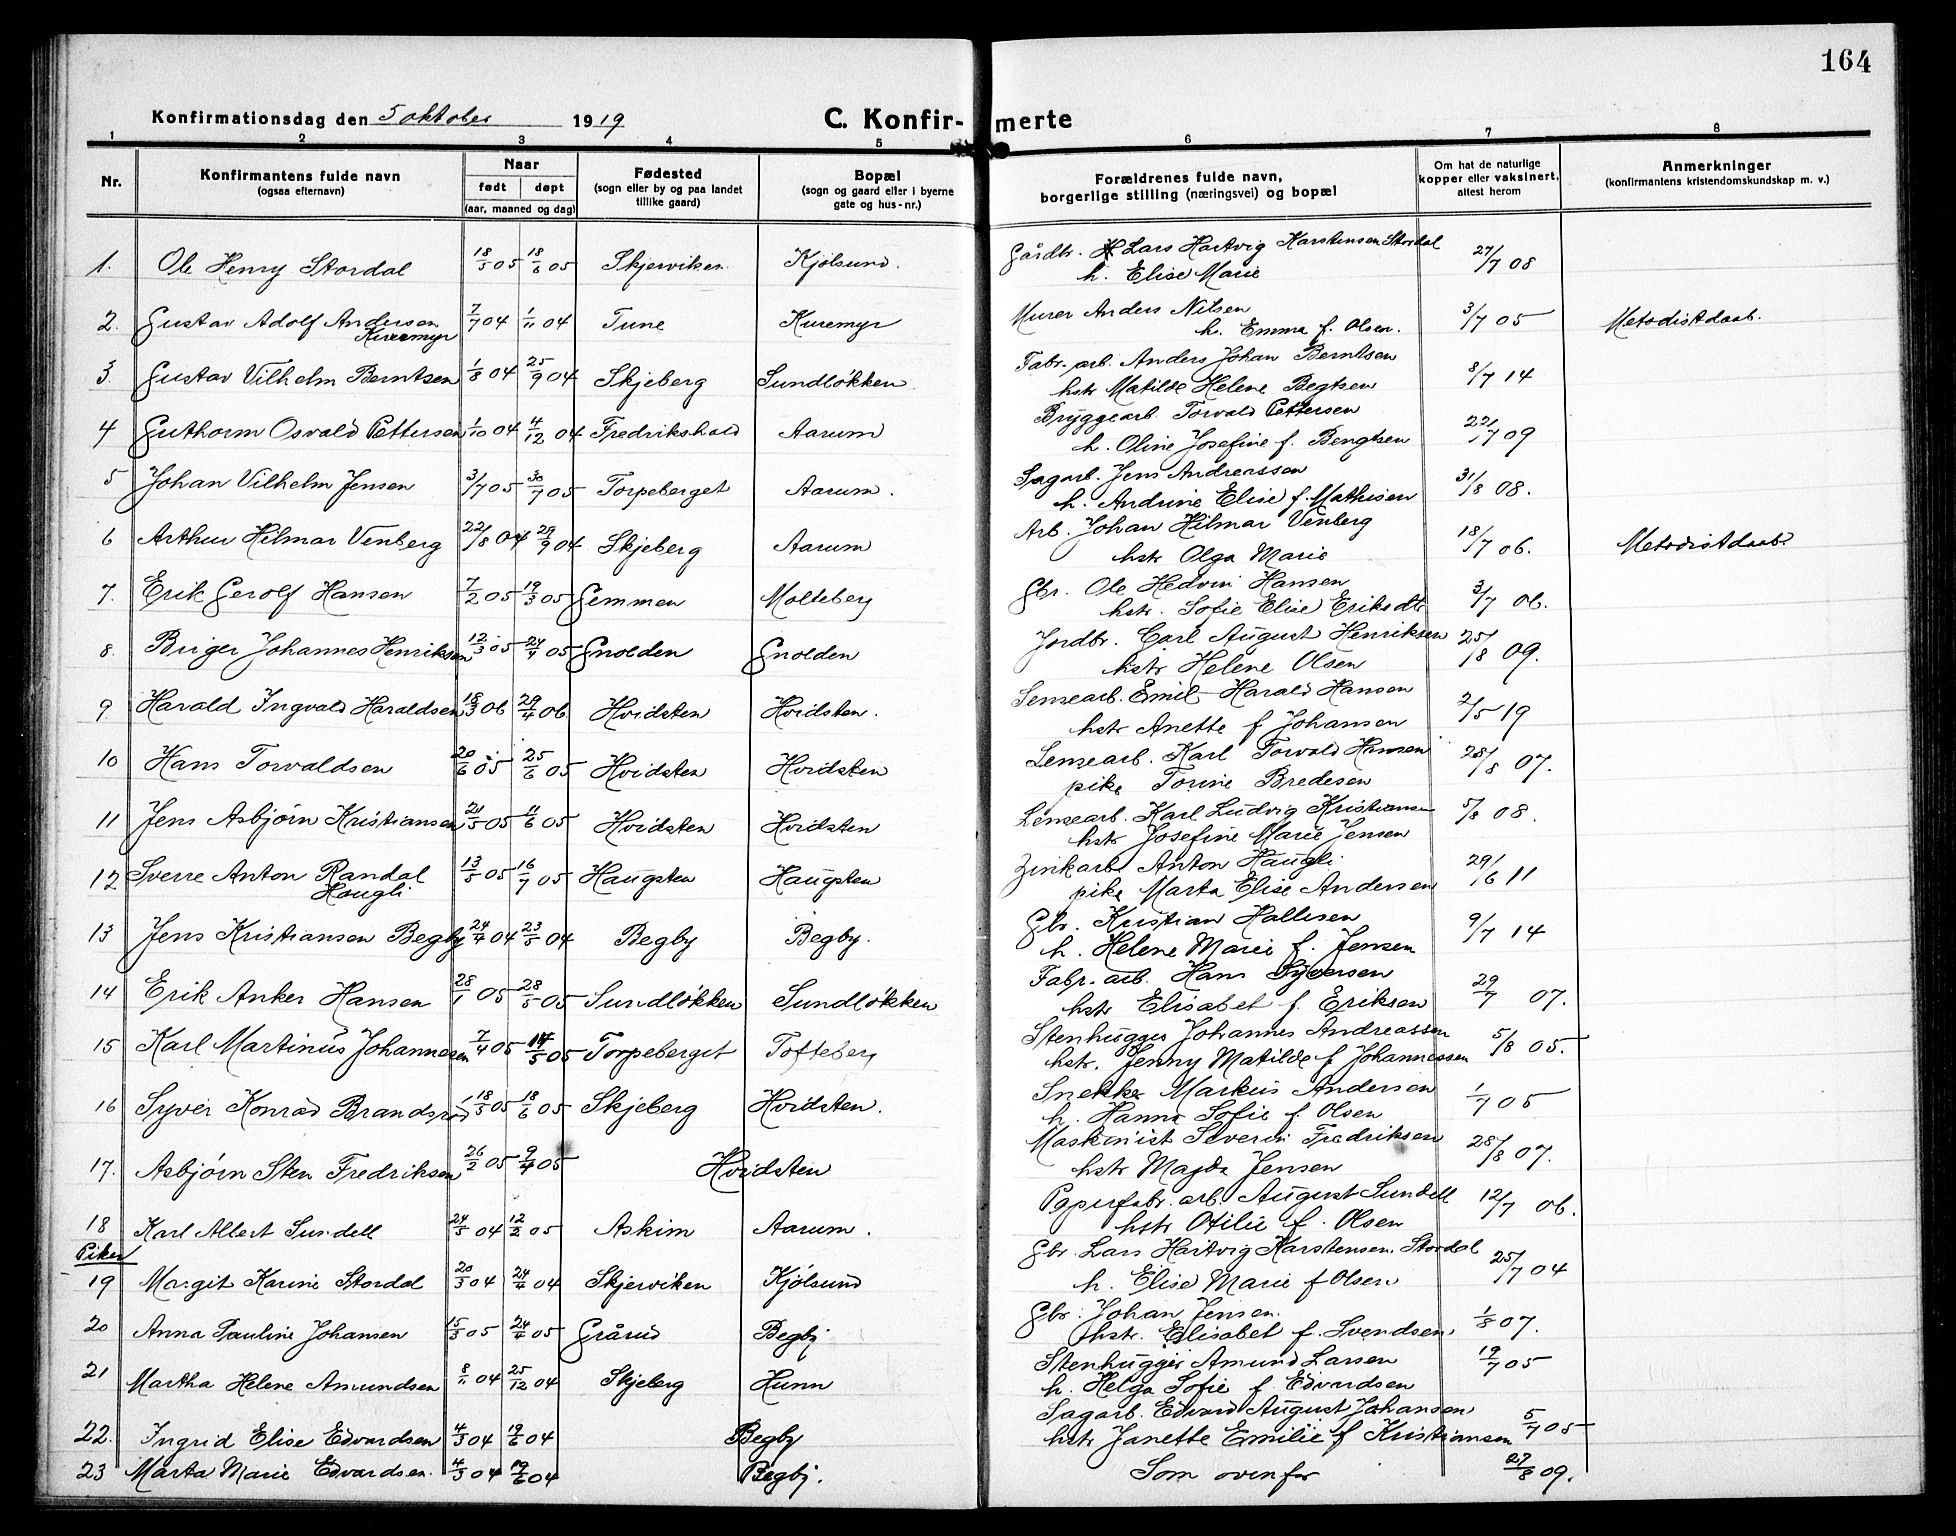 164
Konfirmationsdag den 5 oktober 1919 C. Konfirmerte
1 2 3 4 5 6 7 8
Nr. Konfirmantens fulde navn (ogsaa efternavn) Naar født døpt (aar, maaned og dag) Fødested (sogn eller by og paa landet tillike gaard) Bopæl (sogn og gaard eller i byerne gate og hus-nr.) Forældrenes fulde navn, borgerlige stilling (næringsvei) og bopæl Om hat de naturlige kopper eller vaksinert, attest herom Anmerkninger (konfirmantens kristendomskundskap m. v.)
1. Ole Henry Stordal 18/5 05 18/6 05 Skjerviken Kjølsund. Gårdbr. Lars Hartvig Karstensen Stordal 27/7 08
h. Elise Marie
2. Gustav Adolf Andersen 7/7 04 1/11 04 Tune Kuremyr Murer Anders Nilsen 3/7 05 Metodistdaab.
Kuremyr h. Emma f. Olsen.
3. Gustav Vilhelm Berntsen 1/8 04 25/9 04 Skjeberg Sundløkken Fabr. arb. Anders Johan Berntsen 8/7 14
hstr Matilde Helene Begtsen
4 Guthorm Osvald Pettersen 1/10 04 4/12 04 Fredrikshald Aarum Bryggearb. Torvald Pettersen 22/7 09
h. Oline Josefine f. Bengtsen
5 Johan Vilhelm Jensen 3/7 05 30/7 05 Torpeberget Aarum. Sagarb. Jens Andreassen 31/8 08.
h. Andrine Elise f. Mathisen
6 Arthur Hilmar Venberg 22/8 04 29/9 04 Skjeberg Aarum Arb. Johan Hilmar Venberg 18/7 06. Metodistdaab.
hstr Olga Marie
7. Erik Gerolf Hansen 7/2 05 19/3 05 Gemmen Molteberg Gbr. Ole Hedvin Hansen 3/7 06.
hstr. Sofie Elise Eriksdtr
8. Birger Johannes Henriksen 12/3 05 24/4 05 Gnolden Gnolden Jordbr. Carl August Henriksen 25/8 09.
hstr Helene Olsen
9 Harald Ingvald Haraldsen 18/3 06 29/4 06 Hvidsten Hvidsten. Lensearb. Emil Harald Hansen 2/5 19
hstr Anette f Johansen
10 Hans Torvaldsen 20/6 05 25/6 05 Hvidsten Hvidsten Lensearb. Karl Torvald Hansen 28/8 07.
pike Torine Bredesen
11 Jens Asbjørn Kristiansen 21/5 05 11/6 05 Hvidsten Hvidsten Lensearb. Karl Ludvig Kristiansen 5/8 08.
hstr Josefine Marie Jensen
12 Sverre Anton Randal 13/5 05 16/7 05 Haugsten Haugsten Zinkarb Anton Haugli 29/6 11
Haugli pike Marta Elise Andersen
13 Jens Kristiansen Begby 24/4 04 23/5 04 Begby Begby. Gbr. Kristian Hallesen 9/7 14
h. Helene Marie f. Jensen
14 Erik Anker Hansen 28/1 05 28/5 05 Sundløkken Sundløkken Fabr. arb. Hans Syversen 29/7 07.
hstr Elisabet f. Eriksen
15 Karl Martinus Johannesen 7/4 05 14/5 05 Torpeberget Tofteberg Stenhugger Johannes Andreassen 5/8 05.
hstr. Jenny Matilde f Johannessen
16 Syver Konrad Brandsrød 18/5 05 18/6 05 Skjeberg Hvidsten. Snekker Markus Andersen 1/7 05
h. Hanna Sofie f. Olsen
17. Asbjørn Sten Fredriksen 26/2 05 9/4 05 Hvidsten Maskinist Severin Fredriksen 28/8 07.
hstr Magda Jensen
18 Karl Albert Sundell 24/5 04 12/2 05 Askim Aarum. Papirfabr. arb. August Sundell 12/7 06.
hstr Otilie f. Olsen
Piker
19 Margit Karine Stordal 20/3 04 24/4 04 Skjerviken Kjølsund Gbr. Lars Hartvig Karstensen Stordal 25/7 04
h. Elise Marie f Olsen
20 Anna Pauline Johansen 15/3 05 24/4 05 Grårud Begby Gbr. Johan Jensen 1/8 07.
hstr. Elisabet f. Svendsen.
21 Martha Helene Amundsen 8/11 04 25/12 04 Skjeberg Hunn Stenhugger Amund Larsen 19/7 05
h. Helga Sofie f Edvardsen
22. Ingrid Elise Edvardsen 4/3 04 19/6 04 Begby Sagarb. Edvard August Johansen 5/7 05
hstr Janette Emilie f Kristiansen
23 Marta Marie Edvardsen. 4/3 04 19/6 04 Begby. Som ovenfor 27/8 09.